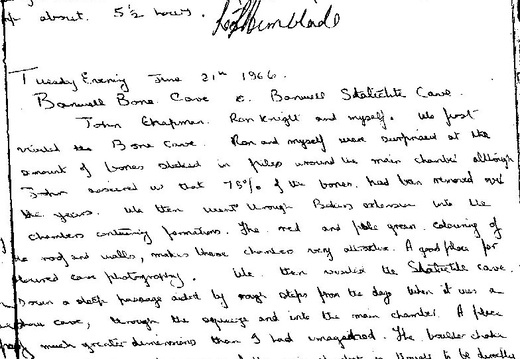 of about. 5½ hours.
Tuesday Evening June 21st 1966.
Banwell Bone Cave & Banwell Stalactite Cave.
John Chapman. Ron Knight and myself. We first
visited the Bone Cave. Ron and myself were surprised at the
amount of bones stacked in piles around the main chamber although
John assured us that 75% of the bones had been removed over
the years. We then went through Bakers extension into the
chambers containing formations. The red and pale green colouring of
the roof and walls, makes these chambers very attractive. A good place for
coloured cave photography. We then visited the Stalactite cave.
Down a steep passage aided by rough steps from the days when it was a
show cave, through the squeeze and into the main chamber. A place
much greater dimensions than I had imagined. The boulder choke
is thought to be directly